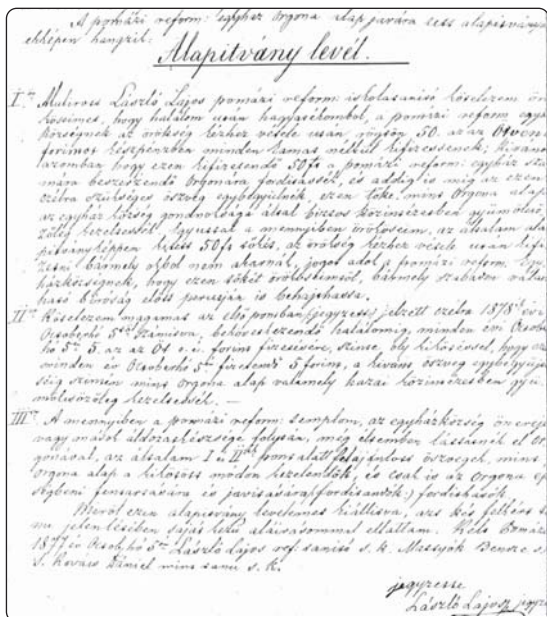 A pomázi reform: egyház Orgona alap javára tett alapítvány
ekképen hangzik:
Alapítvány levél.
I ör László Lajos pomázi reform: iskolatanító kötelezem
hogy halálom után hagyatékomból, a pomázi reform: egyház
községnek az örökség kézhez vétele után rögtön 50. az az Ötven
forintot készpénzben minden kamat nélkül kifizessenek; Kívánom
azomban hogy ezen kifizetendő 50 ft a pomázi reform: egyház szá
mára beszerzendő Orgonára fordíttassék, és addig is míg az ezen
czélra szükséges összeg egybegyűlnék, ezen tőke, mint Orgona alap
az egyház község gondnoksága által biztos közintézetben gyümölcsö
zőleg kezeltessék. Egyúttal a mennyiben örököseim, az általam ala
pítványképpen 50 ft tőkét, az örökség kézhez vétele után kifi
zetni bármely okból nem akarnák, jogot adok a pomázi reform. Egy
házközségnek, hogy ezen tőkét örököseimtől, bármely szabadon választ
ható bíróság előtt perutján is behajthassa.
II or Kötelezem magamat az első pontban jelzett czélra 1878 évi
Octoberhó 5től számítva, bekövetkezendő halálomig, minden évi Octo
hó 5én 5. az az Öt o. é. forint fizetésére, szinte oly kikötéssel, hogy ezen
minden év Octoberhó 5én fizetendő 5 forint, a kívánt összeg egybegyűlté
séig szintén mint Orgona alap valamely hazai közintézetben gyü
mölcsözőleg kezeltessék. —
III or A mennyiben a pomázi reform: templom, az egyházközség ön erején
vagy mások áldozatkészsége folytán, még éltemben láttatnék el Or
gonával, az általam I ső és II ik pont alatt felajánlott összegek, mint
Orgona alap a kikötött módon kezelendők, és csak is az Orgona ép
ségbeni fentartására és javítására fordíttassák.
Miről ezen alapítvány levelemet kiállítva, azt két felkért ta
nú jelenlétében saját kezű aláírásommal elláttam. Kelt Pomázon
1877 év Octob. hó 5én László Lajos ref: tanító s. k. Bencze s.
k. Kovács Dániel mint tanú s. k.
jegyzette
László Lajos jegyző